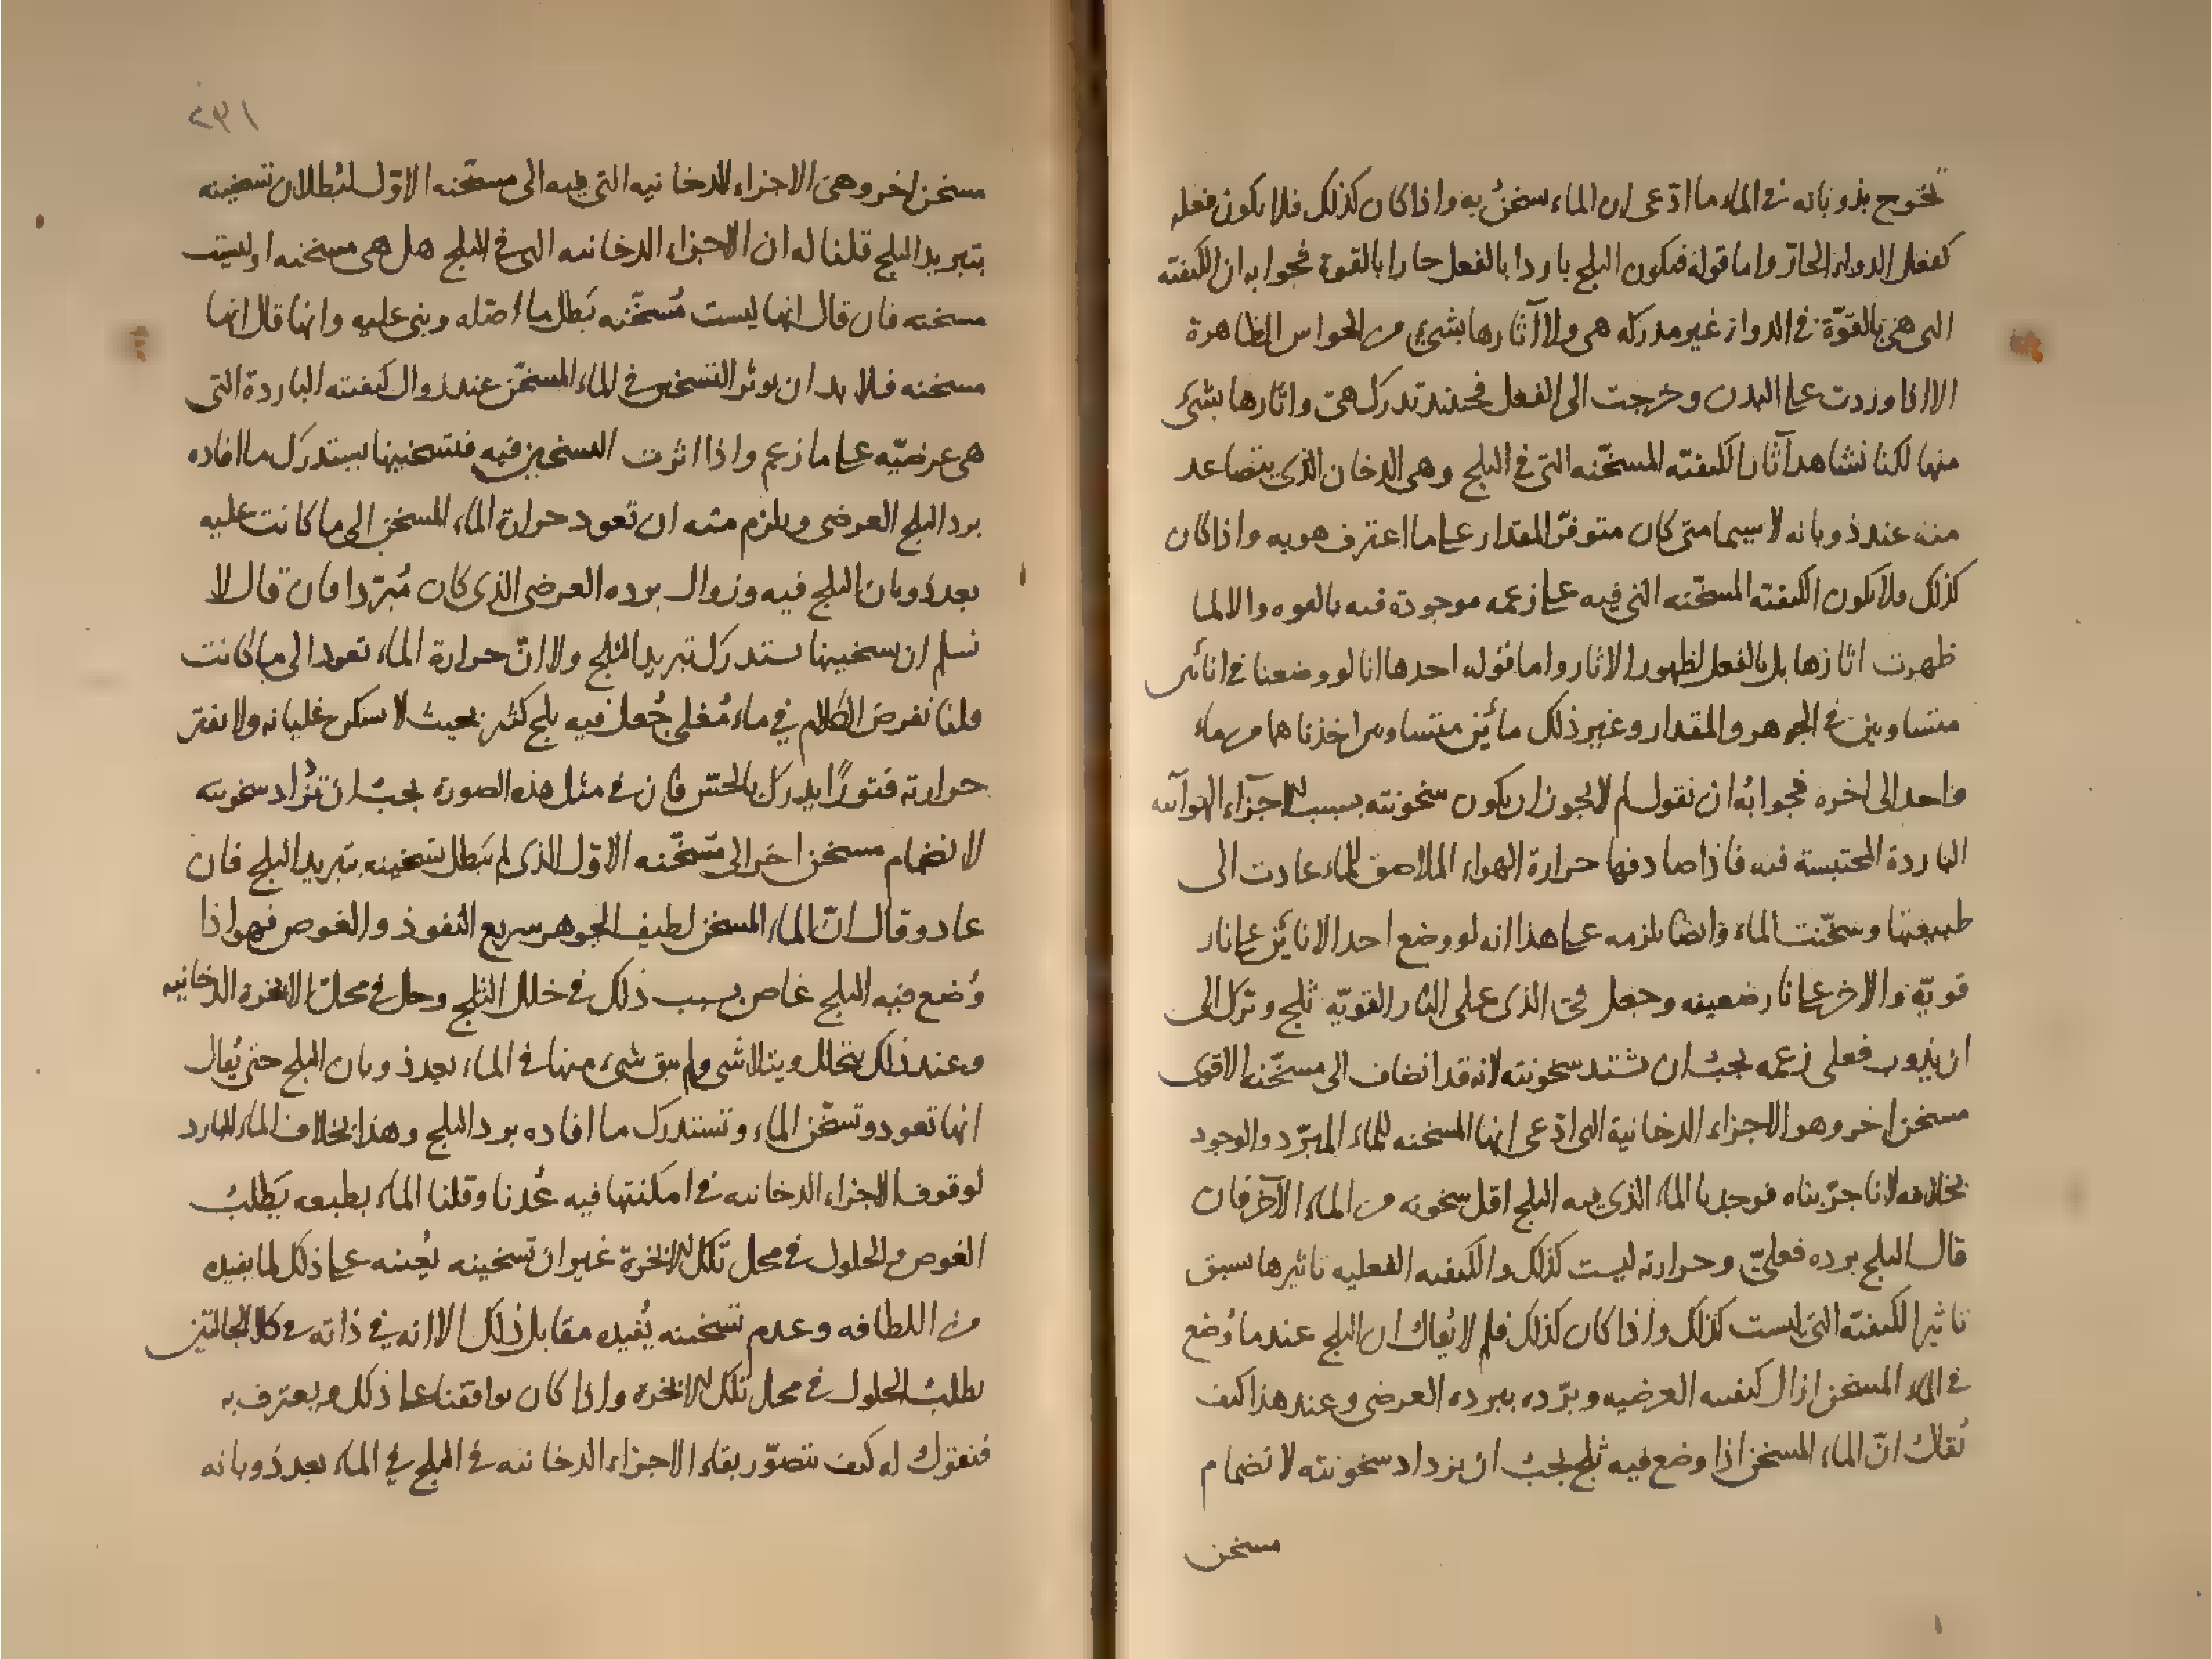 تخرج بذوبانه في الماء ما ادّعى ان الماء سخنُ به واذا كان كذلك فلا يكون فعله
كفعل الدواء الحارّ واما قوله فيكون الثلج باردا بالفعل حارا بالقوة فجوابه ان الكيفيته
التى هى بالقوّة في الدواء غير مدركه هى ولا آثارها بشيء من الحواس الظاهرة
الا اذا وردت على البدن وخرجت الى الفعل فحينئذ تدرك هى واثارها بشيء
منها لكنا نشاهد آثار الكيفيته المسخّنه التى في الثلج وهى الدخان الذى يتصاعد
منه عند ذوبانه لا سيما متى كان متوفّر المقدار على ما اعترف هو به واذا كان
كذلك فلا يكون الكيفيته المسخّنه التى فيه على زعمه موجودة فيه بالقوه والا لما
ظهرت اثارها بل بالفعل لظهور الاثار واما قوله احدها انا لو وضعنا في انائين
متساويين في الجوهر والمقدار وغير ذلك مائين متساويين اخذناهما من ماء
واحد الى اخره فجوابُه ان نقول لم لا يجوز ان يكون سخونته بسبب الاجزاء الهوآئيه
الباردة المحتبسة فيه فاذا صادفها حرارة الهواء الملاصق للماء عادت الى
طبيعتها وسخّنت الماء وايضا يلزمه على هذا انه لو وضع احد الانائين على نار
قويّه والاخر على نار ضعيفه وجعل في الذى على النار القويّه ثلج وترك الى
ان يذوب فعلى زعمه يجبُ ان تشتد سخونته لانه قد انضاف الى مسخّنه الاقوى
مسخن اخر وهو الاجزاء الدخانية التى ادّعى انها المسخنه للماء المبرّد والوجود
بخلافه لانا جرّبناه فوجدنا الماء الذى فيه الثلج اقل سخونه من الماء الآخر فان
قال الثلج برده فعليّ وحرارته ليست كذلك والكيفيه الفعليه تاثيرها سبق
تاثير الكيفيته التى ليست كذلك واذا كان كذلك فلم لا يُقال ان الثلج عندما وُضع
في الماء المسخن ازال كيفيته العرضيه وبرّده ببرده العرضى وعند هذا كيف
يُقالُ انّ الماء المسخن اذا وضع فيه ثلج يجبُ ان يزداد سخونته لانضمام
مسخن
٢٣١
مسخن اخر وهى الاجزاء الدخانيه التى فيه الى مسخّنه الاوّل لبُطلان تسخينه
بتبريد الثلج قلنا له ان الاجزاء الدخانيه التى في الثلج هل هى مسخنه او ليست
مسخنه فان قال انها ليست مُسخّنه بَطل ما اصّله وبنى عليه وانها قال انها
مسخنه فلا بد ان يوثر التسخين في الماء المسخّن عند زوال كيفيته الباردة التى
هى عرضيّه على ما زعم واذا اثرت التسخين فيه فتسخينها يستدرك ما افاده
برد الثلج العرضى ويلزم منه ان تعود حرارة الماء المسخن الى ما كانت عليه
بعد ذوبان الثلج فيه وزوال برده العرضى الذى كان مُبرّدا فان قال لا
نسلم ان سخينها يستدرك تبريد الثلج ولا انّ حرارة الماء تعود الى ما كانت
قلنا نفرض الكلام في ماء مُغلى جُعل فيه ثلج كثير بحيث لا يسكن غليانه ولا يفتر
حرارته فتورًا يدرك بالحسّ فان في مثل هذه الصورة يجبُ ان تُزاد سخونته
لانضمام مسخن اخر الى مُسخّنه الاوّل الذى لم يَبطل تسخينه بتبريد الثلج فان
عاد وقال انّ الماء المسخن لطيف الجوهر سريع النفوذ والغوص فهو اذا
وُضع فيه الثلج غاص بسبب ذلك في خلل الثلج وحل في محلّ الابخرة الدخانيه
وعند ذلك يتحلل ويتلاشى ولم يبق شيء منها في الماء بعد ذوبان الثلج حتى يُقال
انها تعود وتسخّن الماء وتستدرك ما افاده برد الثلج وهذا بخلاف الماء البارد
لوقوف الاجزاء الدخانيه في امكنتها فيه عُدنا وقلنا الماء بطبعه يَطلبُ
الغوص والحلول في محل تلك الابخرة غير ان تسخينه يُعينه على ذلك لما يفيده
من اللطافه وعدم تسخينه يُفيده مقابل ذلك الا انه في ذاته في كلا الحالتين
يطلب الحلول في محل تلك الابخرة واذا كان يوافقنا على ذلك ويعترف به
فنقول له كيف نتصوّر بقاء الاجزاء الدخانيه في الثلج في الماء بعد ذوبانه